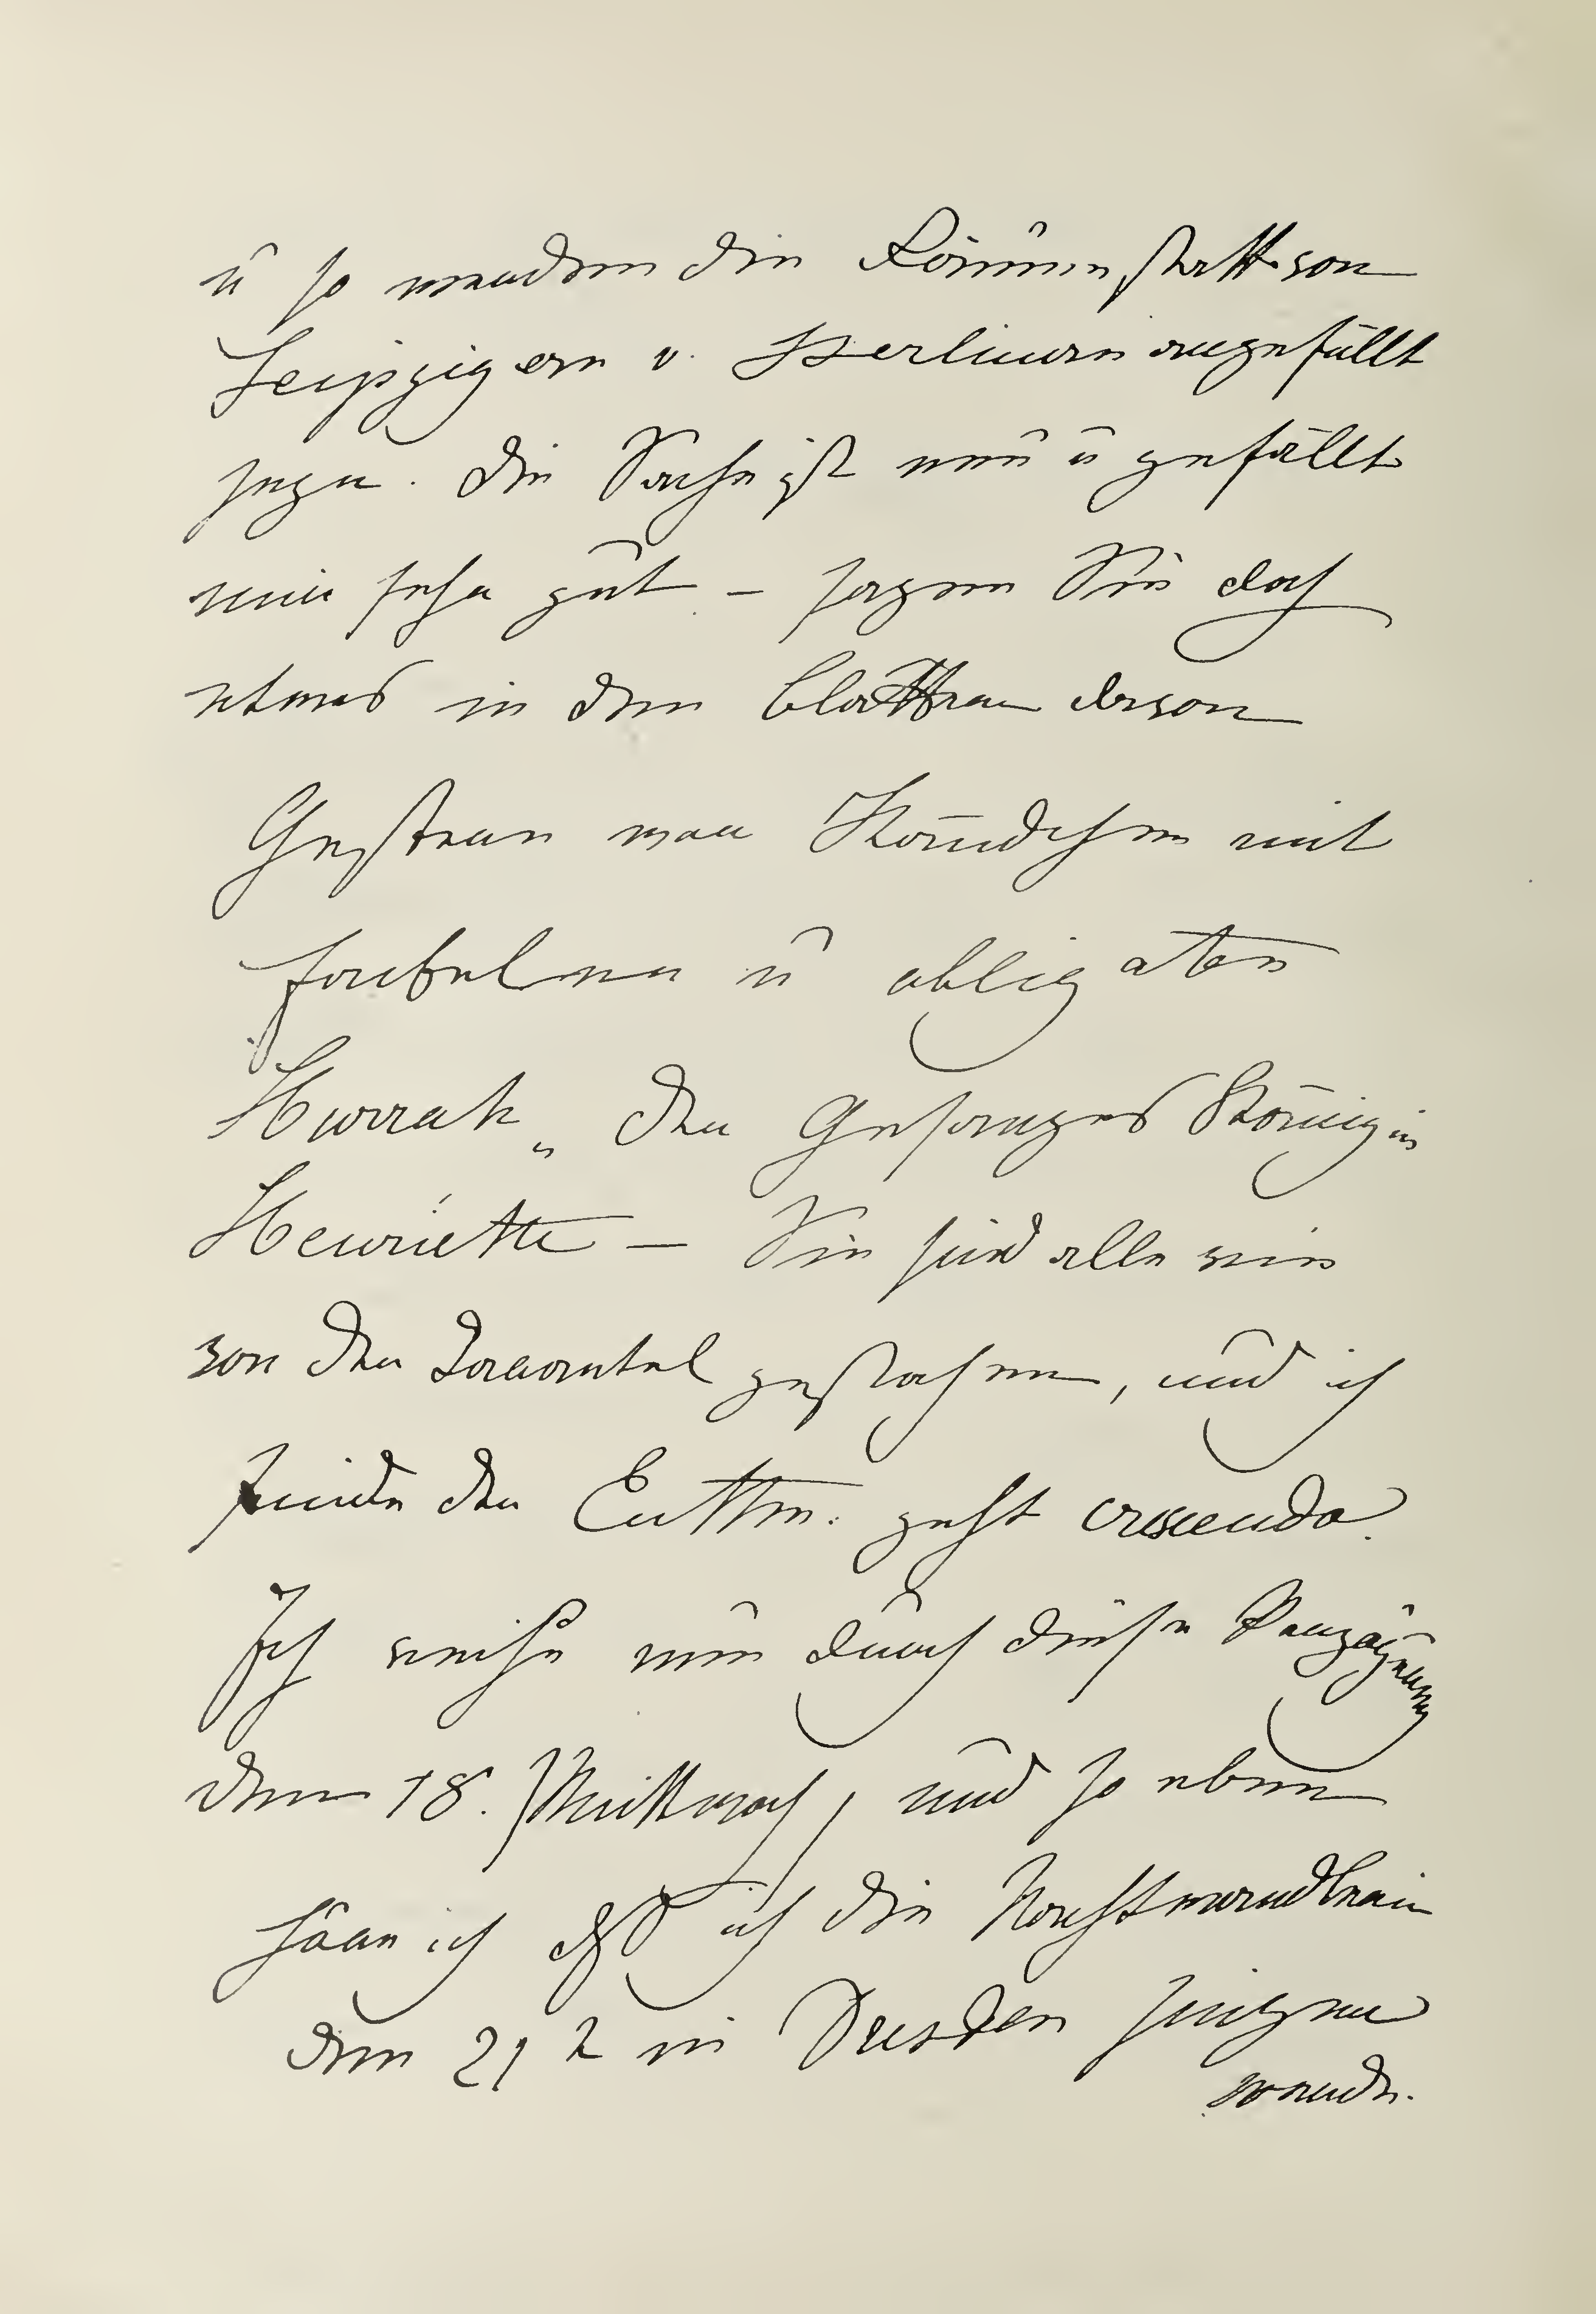 u so werden die Räume statt von
Leipzigern v. Berlinern angefüllt
seyn. Die Sache ist neu u gefällt
mir sehr gut – sagen Sie doch
etwas in den Blättern davon
Gestern war Ständchen mit
Fackeln u obligaten
Hurrah „ der Gesanges Königin
Henriette – Sie sind alle wie
von der Tarantel gestochen, und ich
finde der Enthus. geht crescendo.
Ich reise nun durch diese
den 18. Mittwoch, und so eben
höre ich daß ich die Nachtwandlerin
den 21 t in Dresden singen
werde.